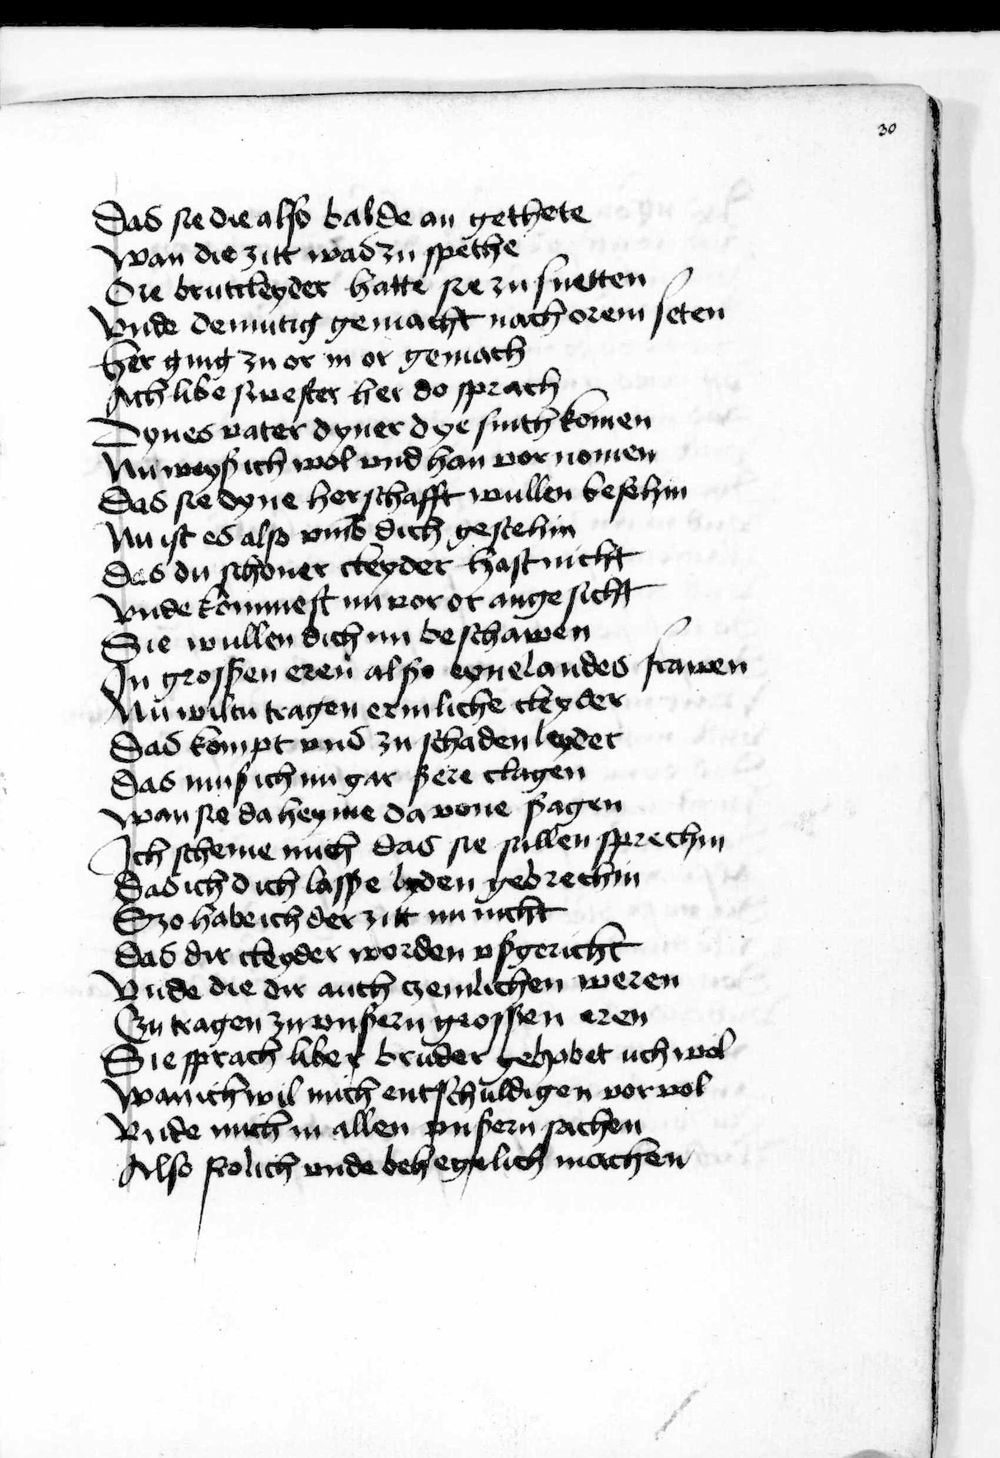 30
Das sie die also balde an gethete
Wan die zitt was zu spethe
Die brutcleyder hatte sie zu snetten
Vnde demutig gemacht nach orem seten
Her ging zu or in or gemach
Ach libe swester her do sprach
Dynes vater dyner dye sinth komen
Nu weyß ich wol vnd han vornomen
Das sie dyne herschafft wullen besehin
Nu ist es also vmb dich gescehin
Das du schoner cleyder hast nicht
Vnde kommest nu vor or angesicht
Sie wullen dich nu beschawen
In großen eren also eyne landes frawen
Nu wiltu tragen ermliche cleyder
Das kompt vns zu schaden leyder
Das muß ich nu gar ßere clagen
Wan sie da heyme da vone ßagen
Ich scheme mich das sie sullen sprechin
Das ich dich laße lyden gebrechin
Szo habe ich der zitt nu nicht
Das dir cleyder worden vßgericht
Vnde die dir auch czemlichen weren
Czu tragen zu vnßern großen eren
Sie sprach liber bruder gehabet uch wol
Wan ich wil mich entschuldigen vor vol
Vnde mich in allen vnßern sachen
Also frolich vnde behegelich machen